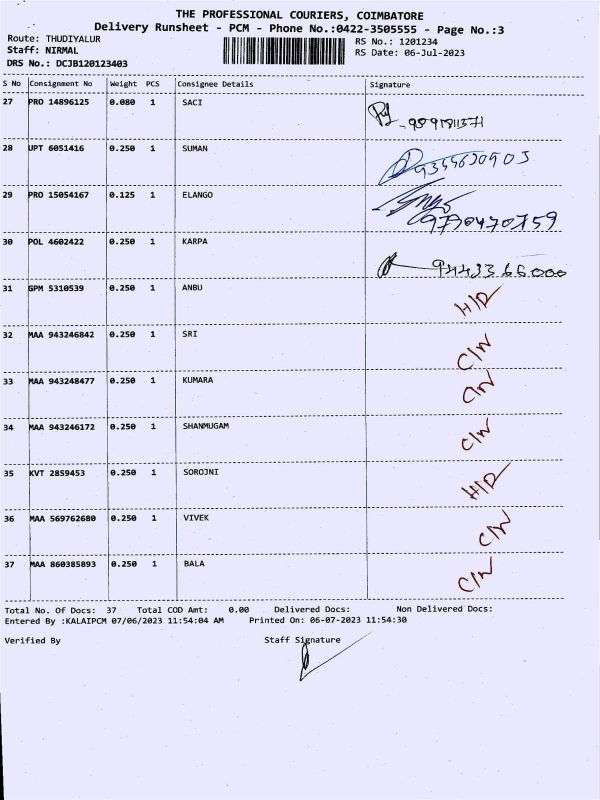 THE PROFESSIONAL COURIERS, COIMBATORE
Delivery Runsheet - PCM - Phone No.:0422-3505555 - Page No.:3
Route: THUDIYALUR RS No.: 1201234
Staff: NIRMAL RS Date: 06-Jul-2023
DRS No.: DCJB120123403
S No Consignment No Weight PCS Consignee Details Signature
27 PRO 14896125 0.080 1 SACI
28 UPT 6051416 0.250 1 SUMAN
29 PRO 15054167 0.125 1 ELANGO 9790470759
30 POL 4602422 0.250 1 KARPA 9443366000
31 GPM 5310539 0.250 1 ANBU H/D
32 MAA 943246842 0.250 1 SRI C/N
33 MAA 943248477 0.250 1 KUMARA C/N
34 MAA 943246172 0.250 1 SHANMUGAM C/N
35 KVT 2859453 0.250 1 SOROJNI H/D
36 MAA 569762680 0.250 1 VIVEK C/N
37 MAA 860385893 0.250 1 BALA C/N
Total No. Of Docs: 37 Total COD Amt: 0.00 Delivered Docs: Non Delivered Docs:
Entered By :KALAIPCM 07/06/2023 11:54:04 AM Printed On: 06-07-2023 11:54:30
Verified By Staff Signature